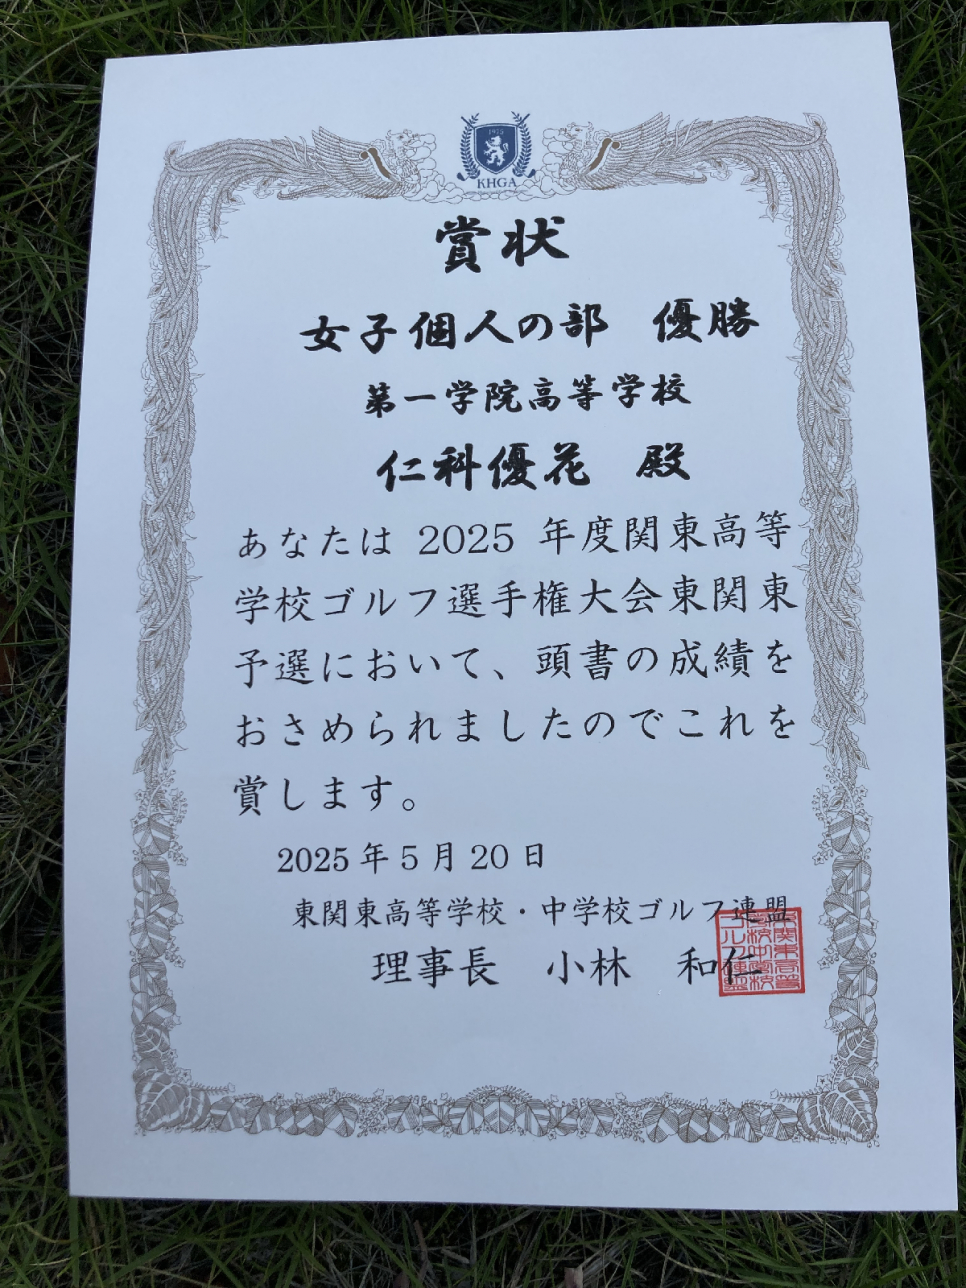 1975
KHGA
賞状
女子個人の部 優勝
第一学院高等学校
仁科優花 殿
あなたは 2025 年度関東高等
学校ゴルフ選手権大会東関東
予選において、頭書の成績を
おさめられましたのでこれを
賞します。
2025 年 5 月 20 日
東関東高等学校・中学校ゴルフ連盟
理事長 小林 和仁